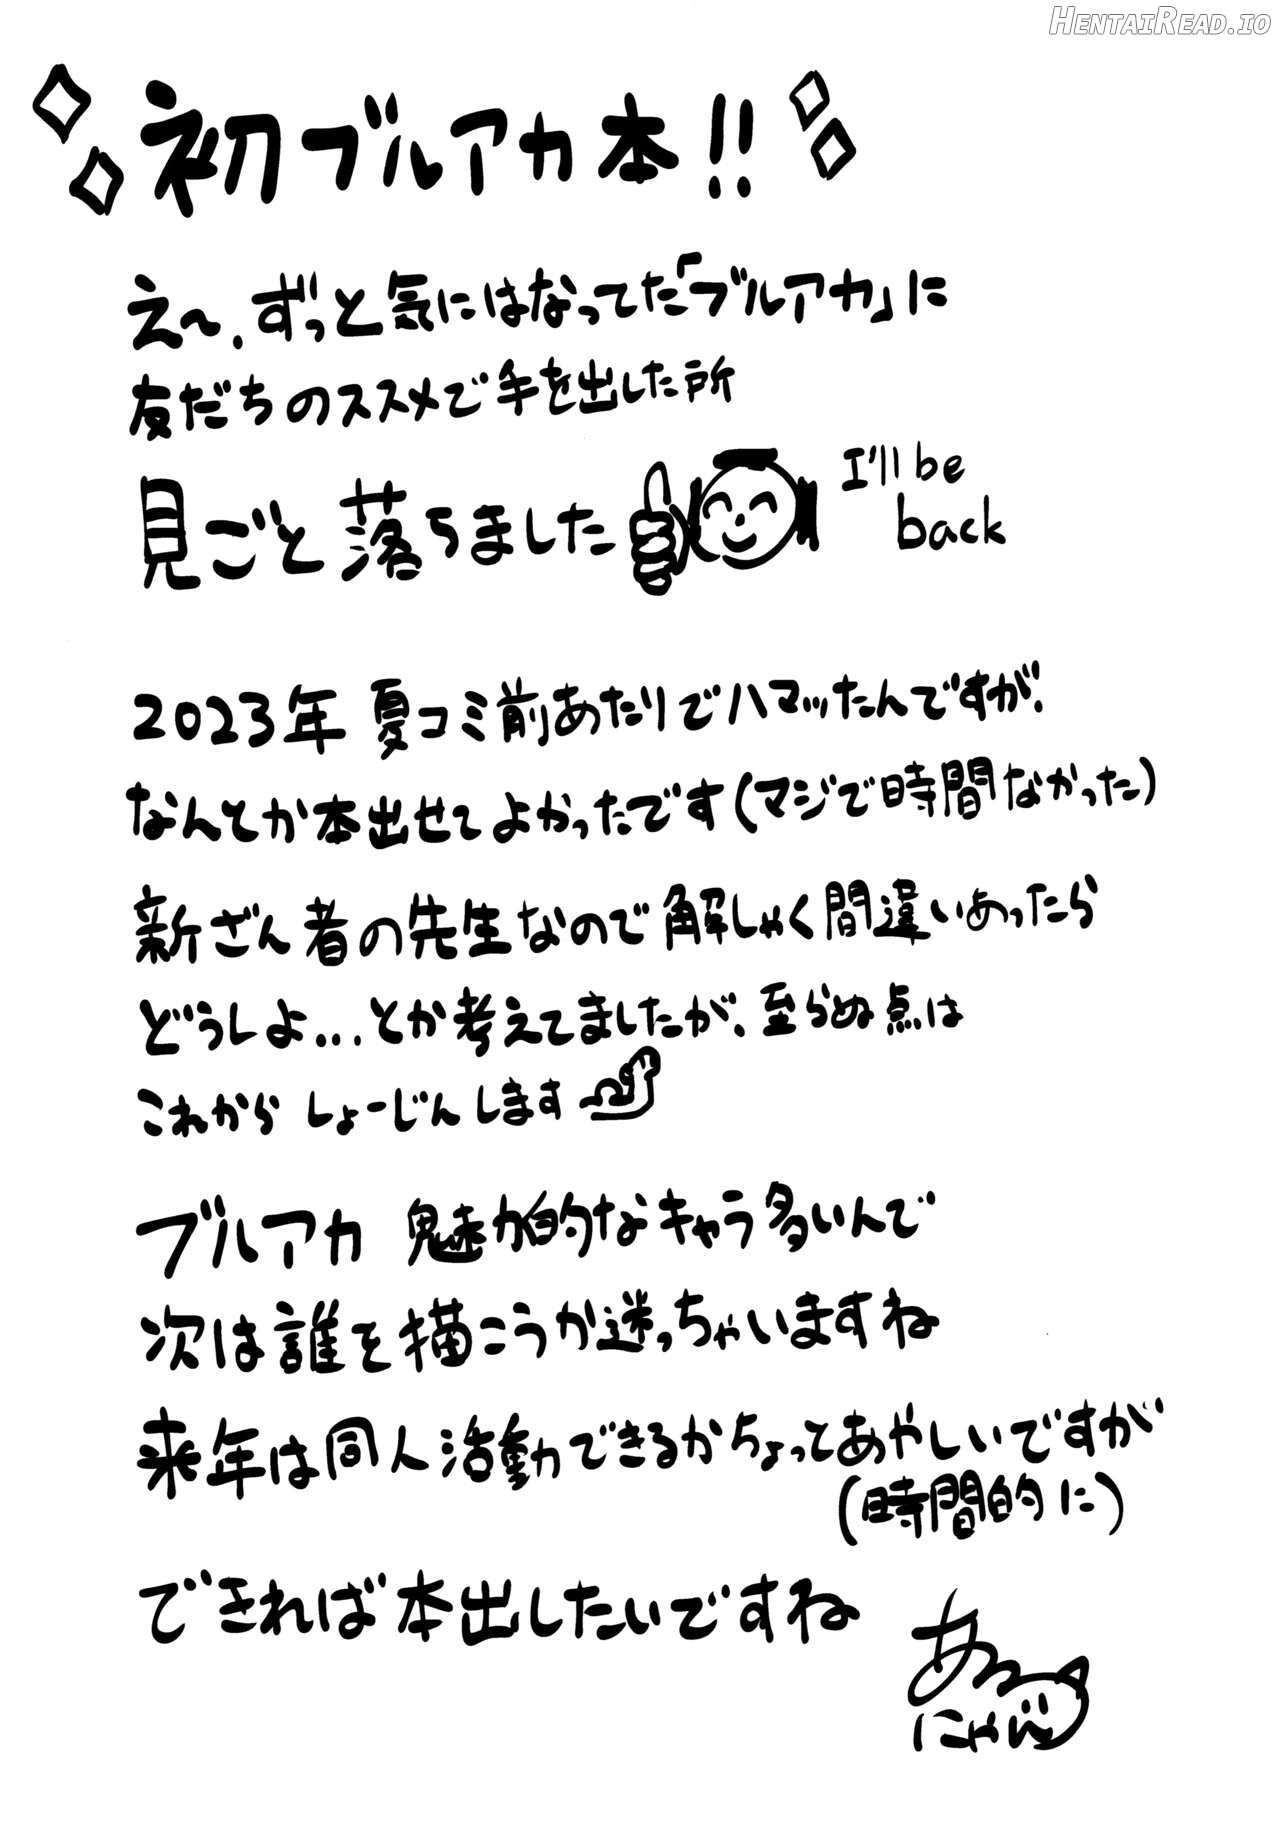 HENTAIREAD.IO
初ブルアカ本!!
え〜、ずっと気にはなってた「ブルアカ」に
友だちのススメで手を出した所
見ごと落ちました
I'll be
back
2023年 夏コミ前あたりでハマッたんですが、
なんとか本出せてよかったです(マジで時間なかった)
新ざん者の先生なので解しゃく間違いあったら
どうしよ...とか考えてましたが、至らぬ点は
これから しょーじんします
ブルアカ 魅力的なキャラ多いんで
次は誰を描こうか迷っちゃいますね
来年は同人活動できるかちょってあやしいですが
(時間的に)
できれば本出したいですね
にゃん